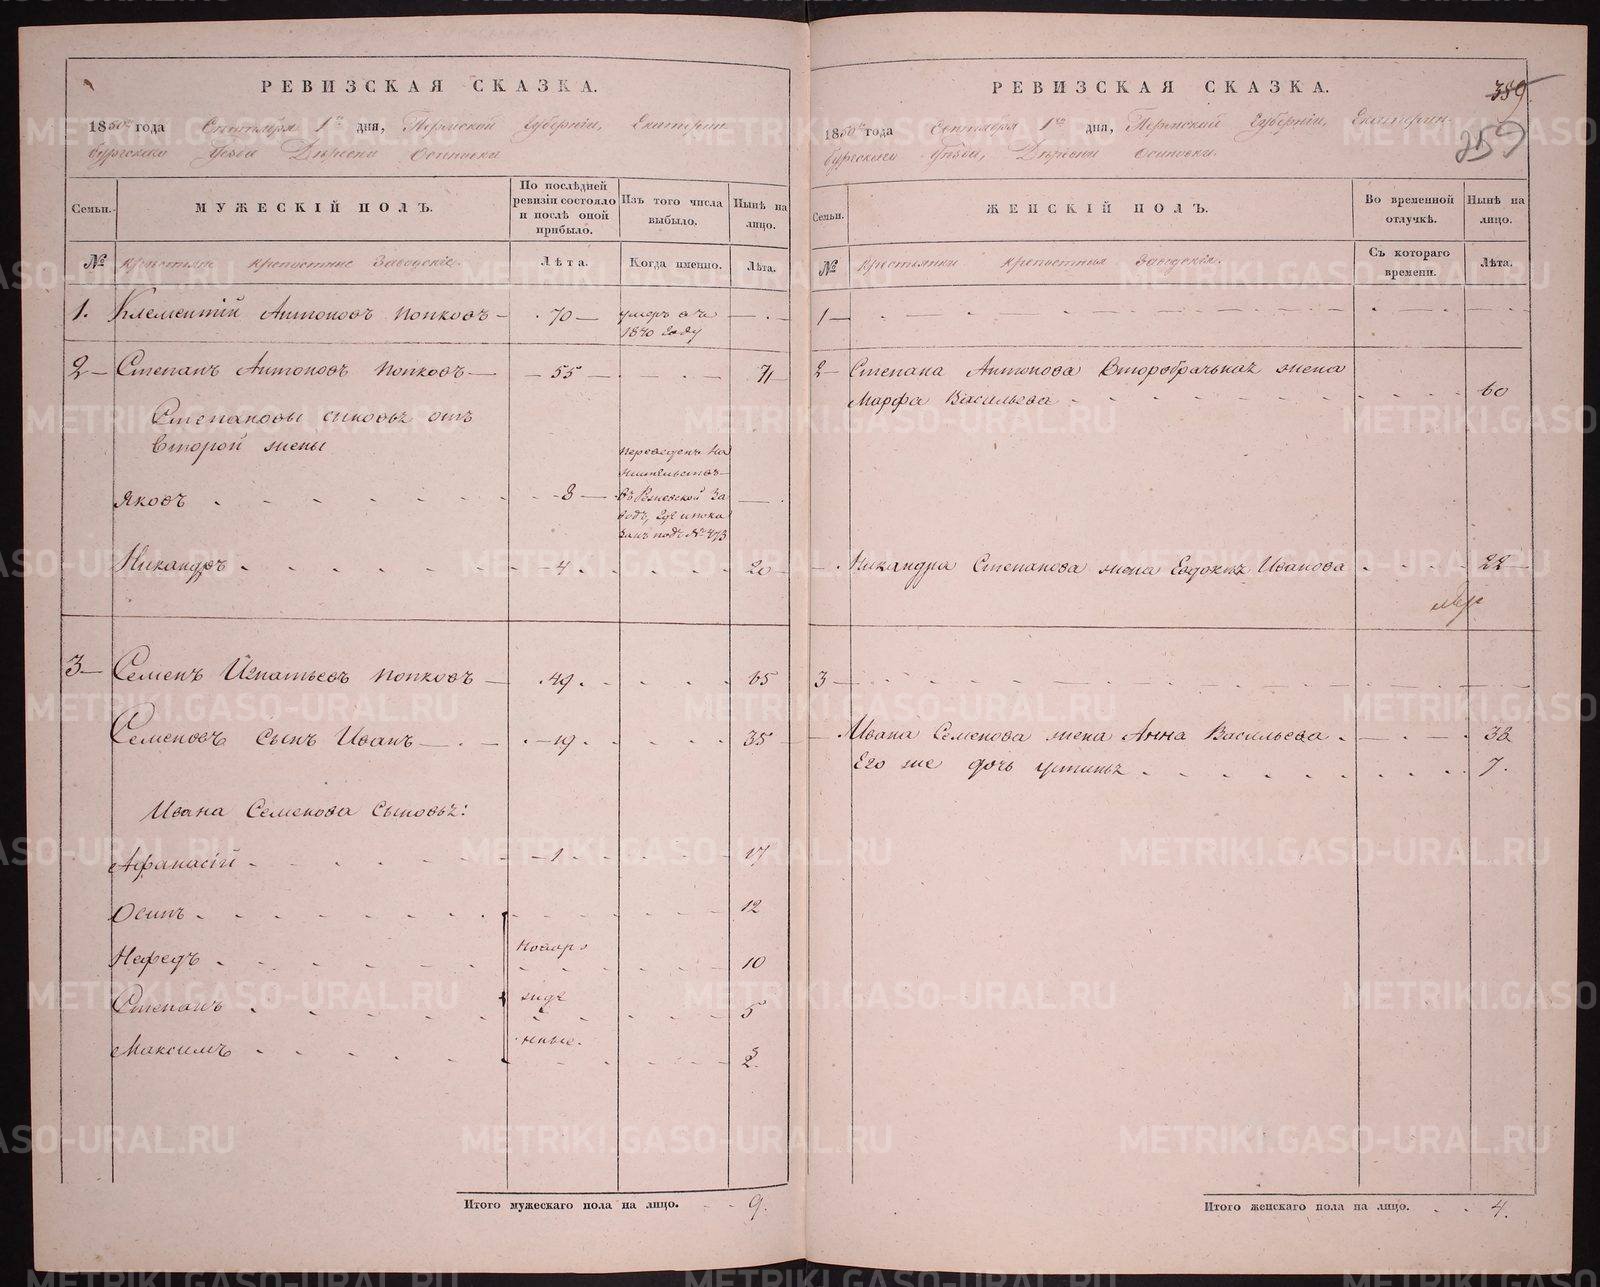 РЕВИЗСКАЯ СКАЗКА.
1850 года Сентября 1го дня, Пермской Губерніи, Екатерин-
бургскаго Уѣзда Деревни Осиновки
Семьи.
МУЖЕСКІЙ ПОЛЪ.
По послѣдней ревизіи состояло и послѣ оной прибыло.
Изъ того числа выбыло.
Нынѣ на лицо.
№ Крестьяне крепостные Заводскіе.
Лѣта.
Когда именно.
Лѣта.
1. Клементій Антоновъ Попковъ 70 умеръ въ
1840 году
2 Степанъ Антоновъ Попковъ 55 71
Степановы сыновья отъ
второй жены
Яковъ 3 переведенъ на
жительство
въ Заводъ, где и показанъ подъ № 473
Никандръ 4 20
3 Семенъ Игнатьевъ Попковъ 49 65
Семеновъ сынъ Иванъ 19 35
Ивана Семенова сыновья:
Афанасій 1 17
Осипъ 12
Нефедъ 10
Степанъ 5
Максимъ 2
Итого мужескаго пола на лицо. 9.
РЕВИЗСКАЯ СКАЗКА.
389
259
1850 года Сентября 1го дня, Пермской Губерніи, Екатерин-
бургскаго Уѣзда, Деревни Осиновки.
Семьи.
ЖЕНСКІЙ ПОЛЪ.
Во временной отлучкѣ.
Нынѣ на лицо.
№ Крестьянки крепостныя Заводскія.
Съ котораго времени.
Лѣта.
1
2 Степана Антонова второбрачная жена
Марфа Васильева 60
Никандра Степанова жена Евдокья Иванова 22
3
Ивана Семенова жена Анна Васильева 38
Его же дочь Устинья 7.
Итого женскаго пола на лицо. 4.
METRIKI.GASO-URAL.RU